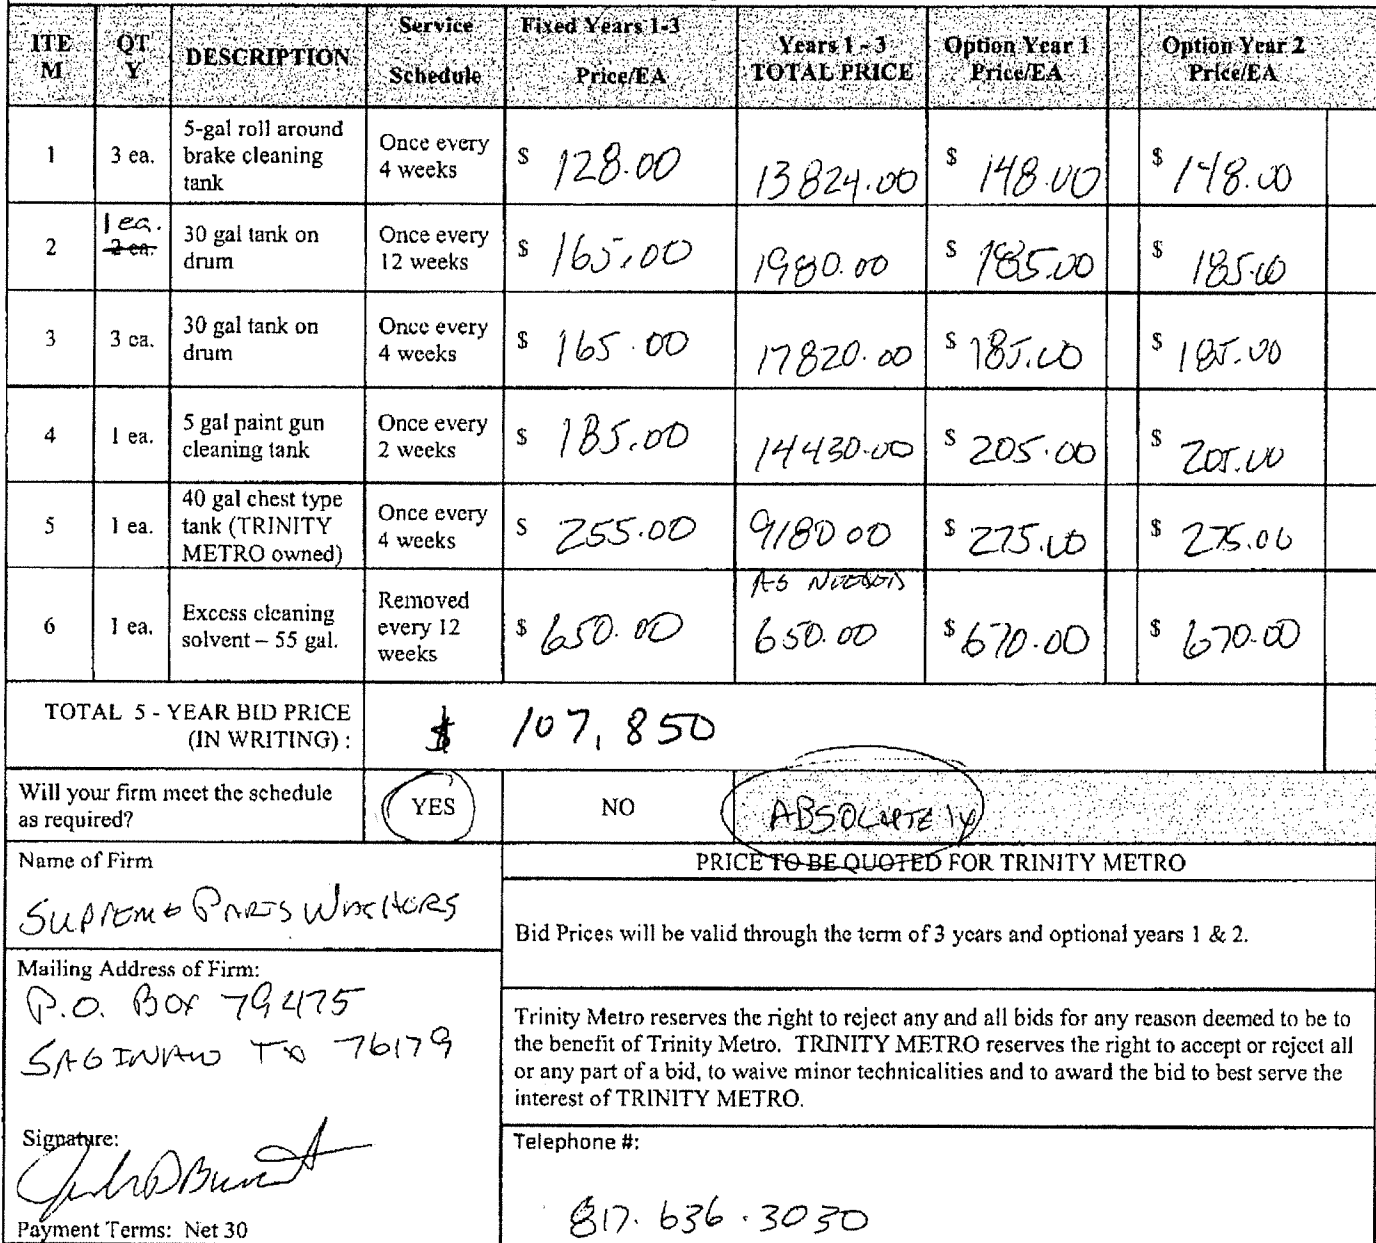 ITE M
QT Y
DESCRIPTION
Service Schedule
Fixed Years 1-3 Price/EA
Years 1 - 3 TOTAL PRICE
Option Year 1 Price/EA
Option Year 2 Price/EA
1 3 ea. 5-gal roll around brake cleaning tank Once every 4 weeks $ 128.00 13824.00 $ 148.00 $ 148.00
2 1 ea. 2 ea. 30 gal tank on drum Once every 12 weeks $ 165.00 1980.00 $ 185.00 $ 185.00
3 3 ea. 30 gal tank on drum Once every 4 weeks $ 165.00 17820.00 $ 185.00 $ 185.00
4 1 ea. 5 gal paint gun cleaning tank Once every 2 weeks $ 185.00 14430.00 $ 205.00 $ 205.00
5 1 ea. 40 gal chest type tank (TRINITY METRO owned) Once every 4 weeks $ 255.00 9180 00 $ 275.00 $ 275.00
6 1 ea. Excess cleaning solvent – 55 gal. Removed every 12 weeks $ 650.00 AS NEEDED 650.00 $ 670.00 $ 670.00
TOTAL 5 - YEAR BID PRICE
(IN WRITING) :
$ 107,850
Will your firm meet the schedule
as required?
YES
NO
ABSOLUTELY
Name of Firm
SUPREME PARTS WASHERS
PRICE TO BE QUOTED FOR TRINITY METRO
Bid Prices will be valid through the term of 3 years and optional years 1 & 2.
Mailing Address of Firm:
P.O. BOX 79475
SAGINAW TX 76179
Trinity Metro reserves the right to reject any and all bids for any reason deemed to be to
the benefit of Trinity Metro. TRINITY METRO reserves the right to accept or reject all
or any part of a bid, to waive minor technicalities and to award the bid to best serve the
interest of TRINITY METRO.
Signature:
Payment Terms: Net 30
Telephone #:
817.636.3030